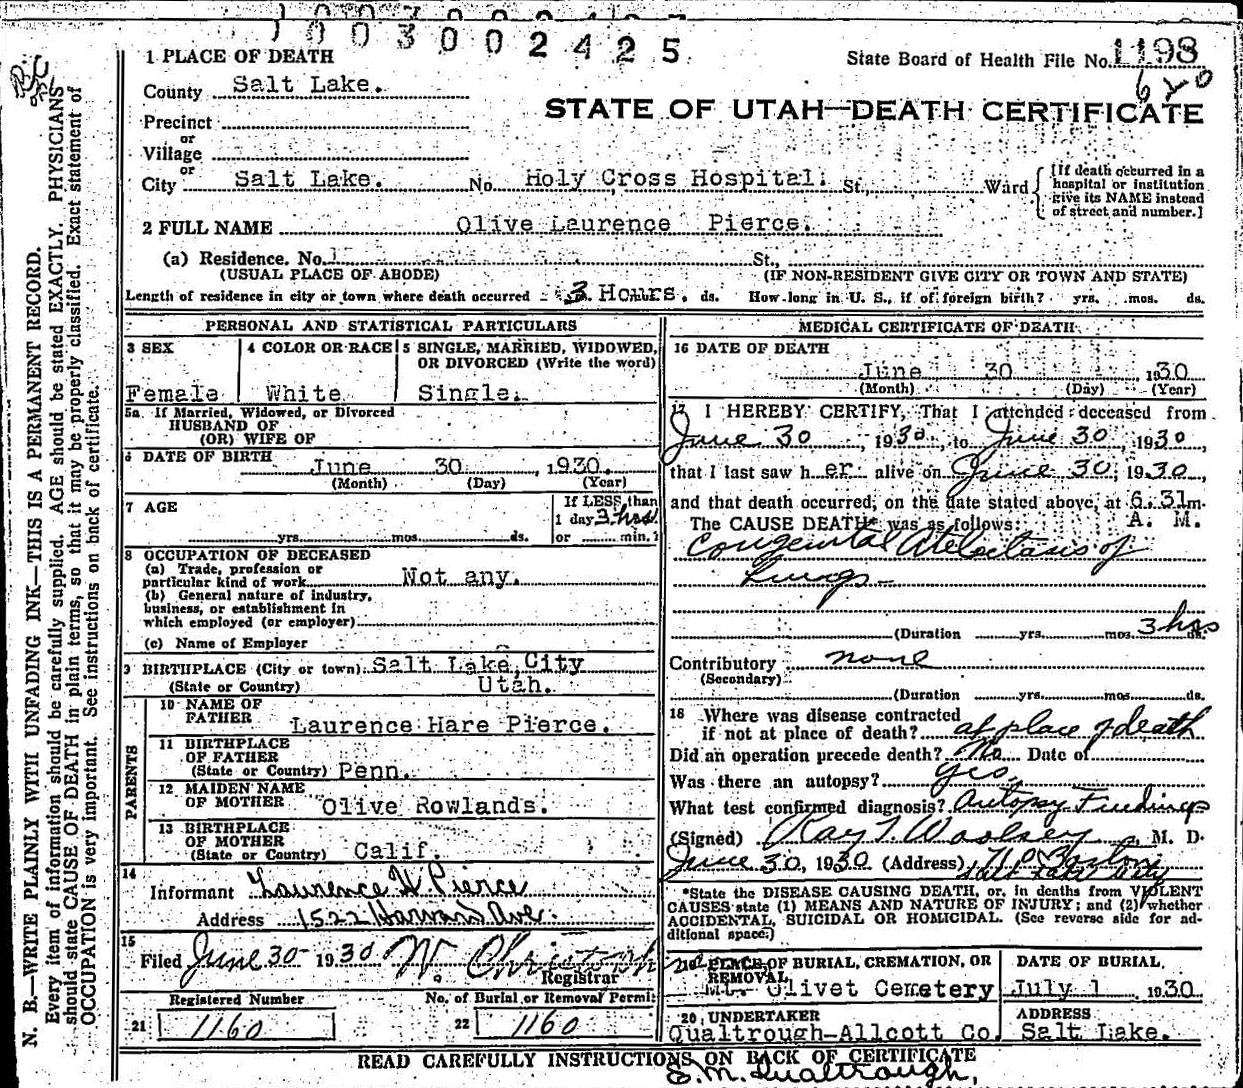 1003002425
State Board of Health File No. 1198
1 PLACE OF DEATH
County Salt Lake.
STATE OF UTAH—DEATH CERTIFICATE
Precinct
or
Village
or
City Salt Lake. No. Holy Cross Hospital. St., Ward
[If death occurred in a hospital or institution give its NAME instead of street and number.]
2 FULL NAME Olive Laurence Pierce.
(a) Residence. No. St.,
(USUAL PLACE OF ABODE) (IF NON-RESIDENT GIVE CITY OR TOWN AND STATE)
Length of residence in city or town where death occurred 3 Hours. ds. How long in U. S., if of foreign birth? yrs. mos. ds.
PERSONAL AND STATISTICAL PARTICULARS
3 SEX 4 COLOR OR RACE 5 SINGLE, MARRIED, WIDOWED,
OR DIVORCED (Write the word)
Female White Single.
5a If Married, Widowed, or Divorced
HUSBAND OF
(OR) WIFE OF
6 DATE OF BIRTH June 30, 1930.
(Month) (Day) (Year)
7 AGE If LESS than
1 day 3 hrs.
yrs. mos. ds. or min.?
8 OCCUPATION OF DECEASED
(a) Trade, profession or
particular kind of work Not any.
(b) General nature of industry,
business, or establishment in
which employed (or employer)
(c) Name of Employer
9 BIRTHPLACE (City or town) Salt Lake City
(State or Country) Utah.
PARENTS
10 NAME OF
FATHER Laurence Hare Pierce.
11 BIRTHPLACE
OF FATHER
(State or Country) Penn.
12 MAIDEN NAME
OF MOTHER Olive Rowlands.
13 BIRTHPLACE
OF MOTHER
(State or Country) Calif.
14
Informant Laurence H. Pierce
Address 1522 Harvard Ave.
15
Filed June 30 1930
Registrar
Registered Number No. of Burial or Removal Permit
21 1160 22 1160
MEDICAL CERTIFICATE OF DEATH
16 DATE OF DEATH
June 30 1930
(Month) (Day) (Year)
17 I HEREBY CERTIFY, That I attended deceased from
June 30, 1930, to June 30, 1930,
that I last saw h er alive on June 30, 1930,
and that death occurred, on the date stated above, at 6.31 m.
The CAUSE DEATH* was as follows: A. M.
Congenital Atelectasis of
Lungs
(Duration yrs. mos. 3 hrs ds.
Contributory none
(Secondary)
(Duration yrs. mos. ds.
18 Where was disease contracted
if not at place of death? at place of death
Did an operation precede death? No Date of
Was there an autopsy? yes.
What test confirmed diagnosis? Autopsy Findings
(Signed) Ray T. Woolsey, M. D.
June 30, 1930 (Address)
*State the DISEASE CAUSING DEATH, or, in deaths from VIOLENT
CAUSES state (1) MEANS AND NATURE OF INJURY; and (2) whether
ACCIDENTAL, SUICIDAL OR HOMICIDAL. (See reverse side for ad-
ditional space.)
19 PLACE OF BURIAL, CREMATION, OR
REMOVAL DATE OF BURIAL
Mt. Olivet Cemetery July 1 1930
20 UNDERTAKER ADDRESS
Qualtrough-Allcott Co. Salt Lake.
READ CAREFULLY INSTRUCTIONS ON BACK OF CERTIFICATE
S. M. Qualtrough,
N. B.—WRITE PLAINLY WITH UNFADING INK—THIS IS A PERMANENT RECORD.
Every item of information should be carefully supplied. AGE should be stated EXACTLY. PHYSICIANS
should state CAUSE OF DEATH in plain terms, so that it may be properly classified. Exact statement of
OCCUPATION is very important. See instructions on back of certificate.